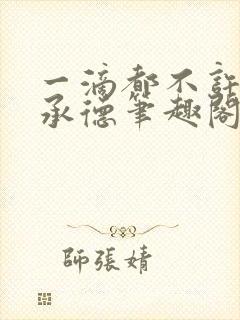 一滴都不許
承德筆趣閣
師張婧